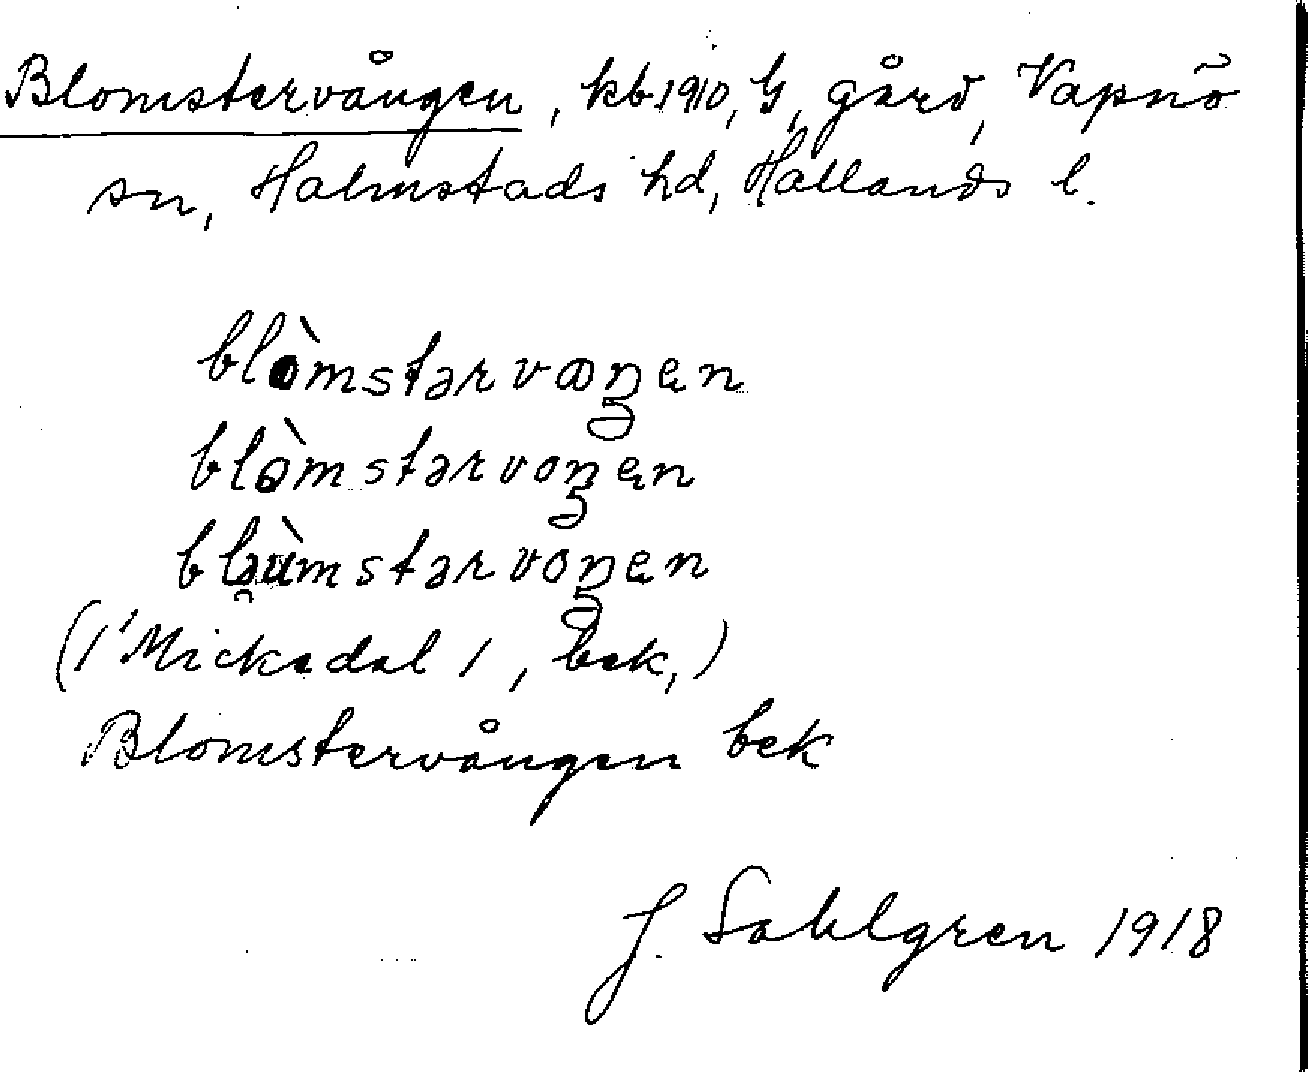 Blomstervången, kb 1910, G, gård, Vapnö
sn, Halmstads hd, Hallands l.
blòmstərvaŋən
blòmstərvoŋən
bləùmstərvoŋən
(1 Mickedal 1, bek.)
Blomstervången bek
J. Sahlgren 1918